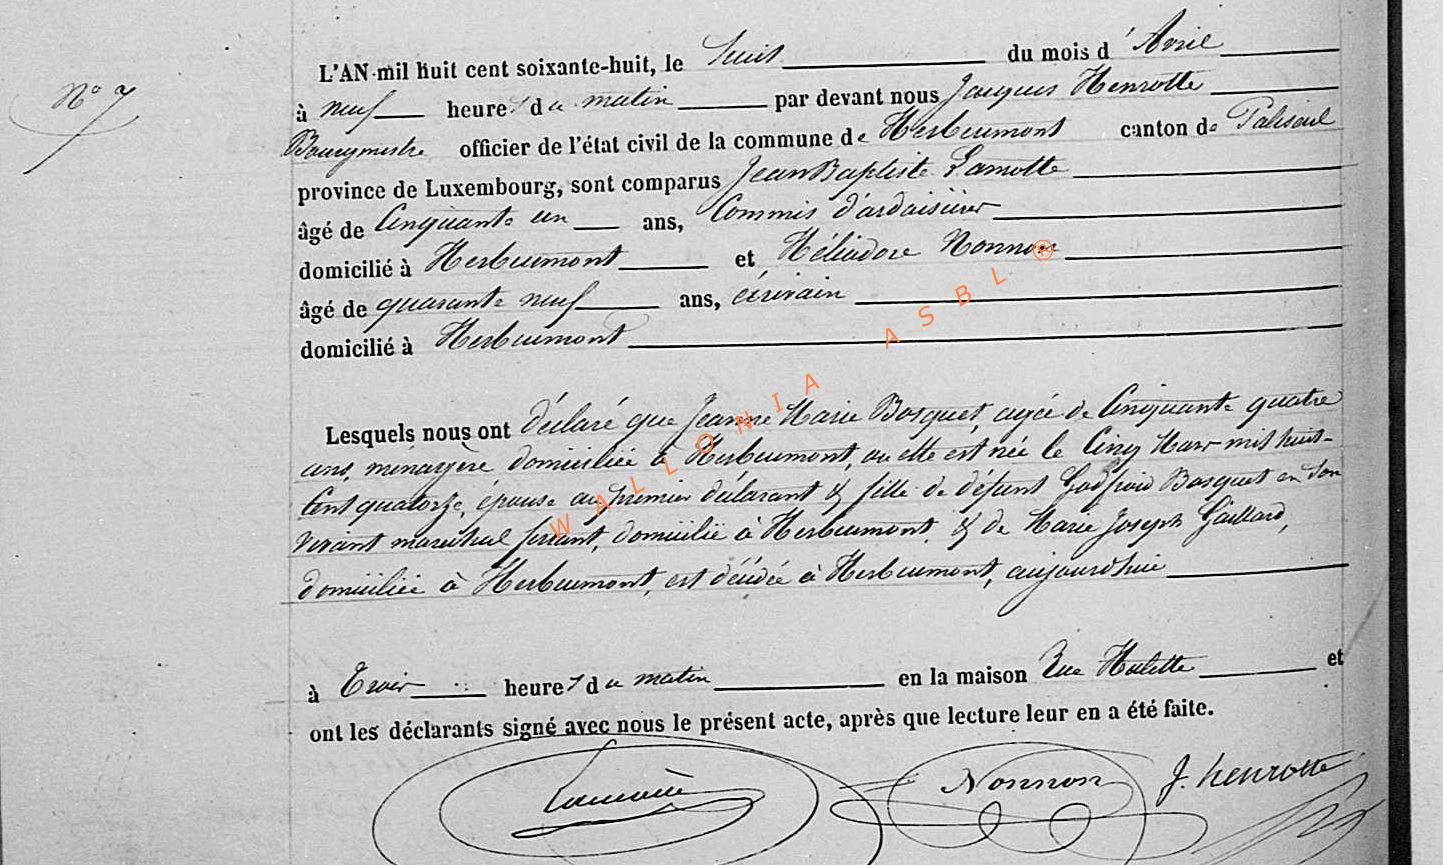 N° 7
L'AN mil huit cent soixante-huit, le huit du mois d'Avril
à neuf heures du matin par devant nous Jacques Henrotte
Bourgmestre officier de l'état civil de la commune de Herbeumont canton de Paliseul
province de Luxembourg, sont comparus Jean Baptiste Lamotte
âgé de Cinquante un ans, Commis d'ardoisière
domicilié à Herbeumont et Héliodore Nonnon
âgé de quarante neuf ans, écrivain
domicilié à Herbeumont
Lesquels nous ont déclaré que Jeanne Marie Bosquet, agée de Cinquante quatre
ans, menagère domiciliée à Herbeumont, ou elle est née le Cinq Mars mil huit-
Cent quatorze, épouse au premier déclarant & fille de défunt Godfroid Bosquet en son
vivant marechal ferrant, domicilié à Herbeumont, & de Marie Joseph Gaillard,
domiciliée à Herbeumont, est décédée à Herbeumont, aujourd'hui
à Trois heures du matin en la maison Rue Hulette et
ont les déclarants signé avec nous le présent acte, après que lecture leur en a été faite.
Lamotte Nonnon J. henrotte
WALLONIA ASBL